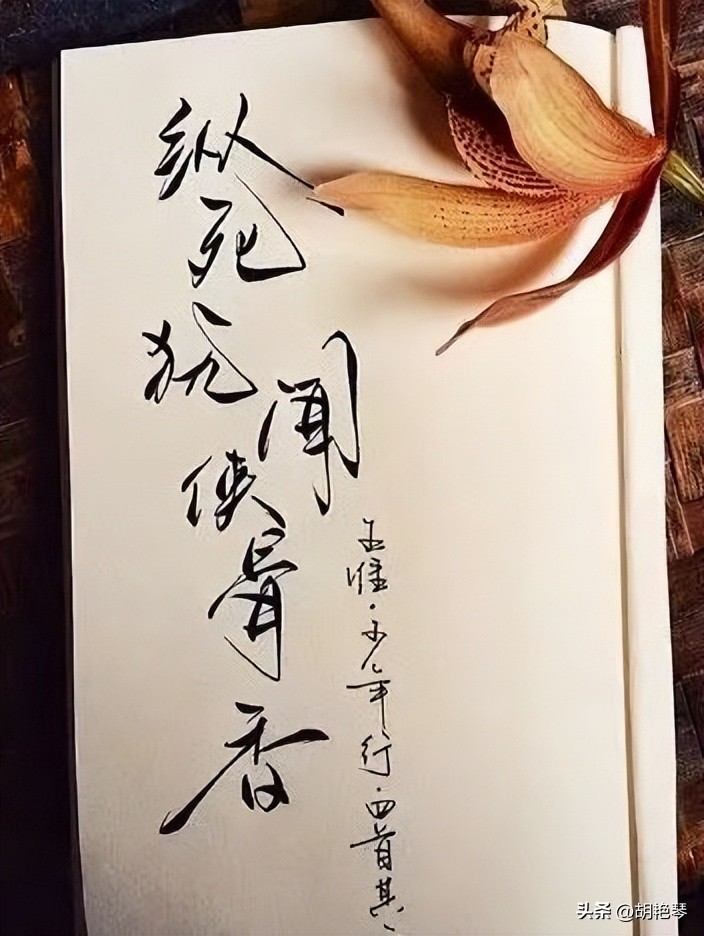 纵死犹闻侠骨香
王维·少年行·四首其二
头条 @胡艳琴